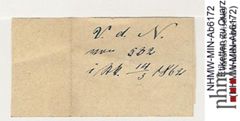 V. d. N.
von 502
i. Ak. 14/3 1862
NHMW-MIN-Ab6172
Etiketten zu Quarz
(NHMW-MIN-Ab6172)